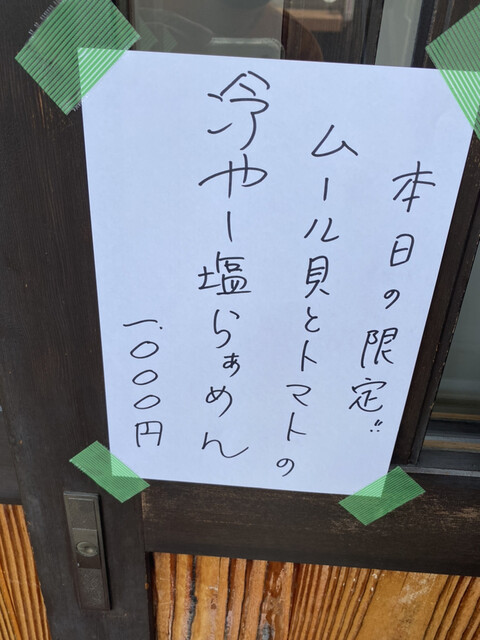 本日の限定!!
ムール貝とトマトの
冷やー塩らぁめん
一.〇〇〇円